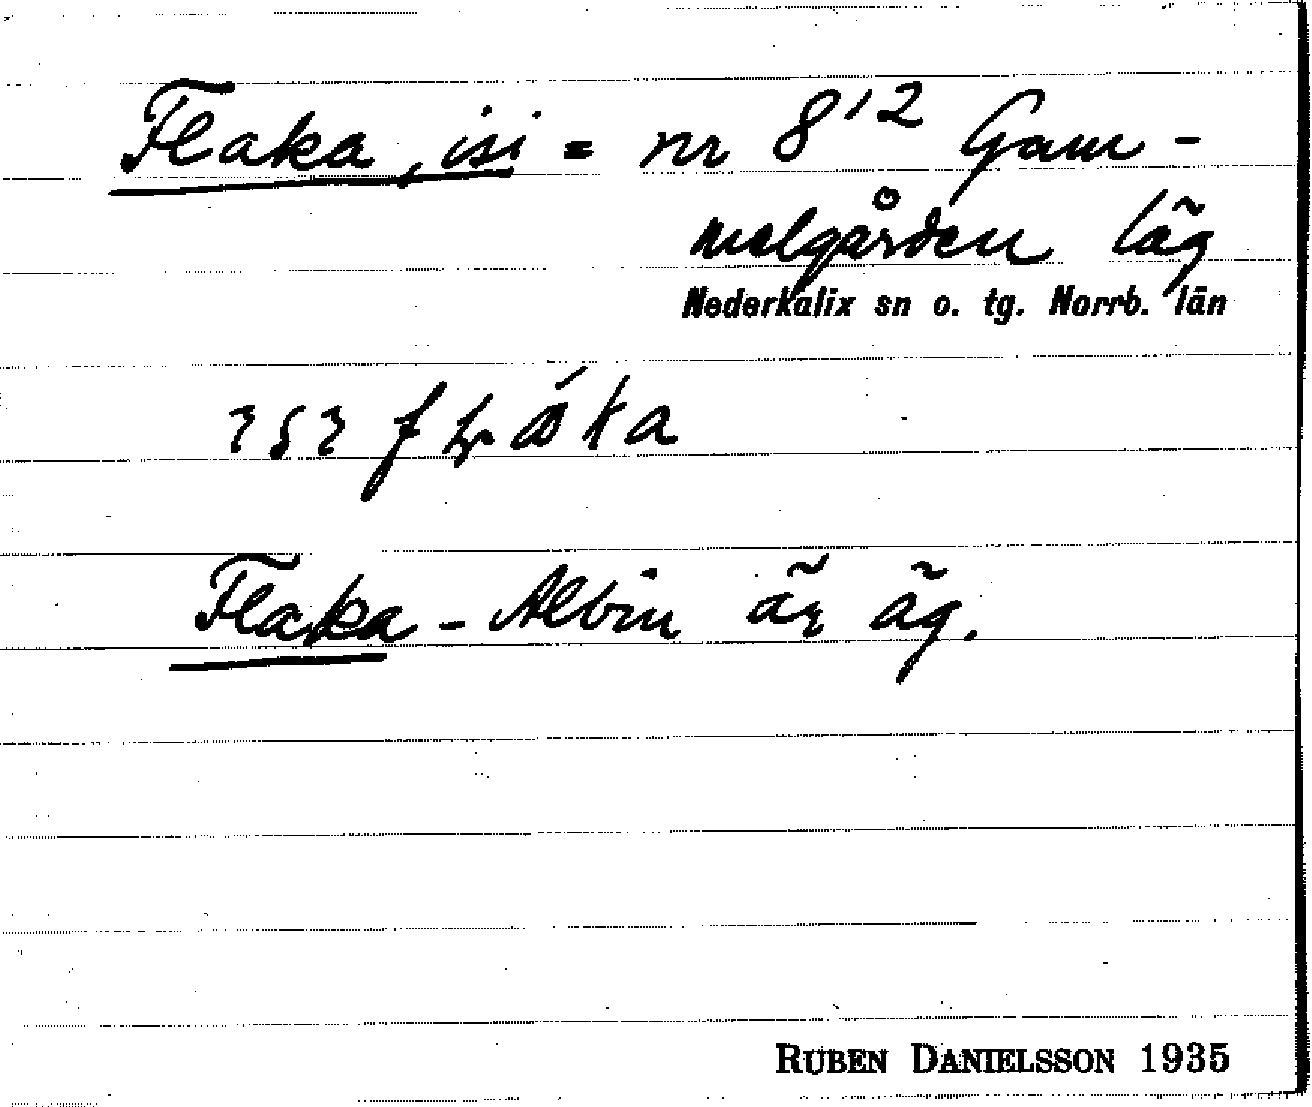 Flaka, isi = nr 8¹² Gam-
melgården läg
Nederkalix sn o. tg. Norrb. län
Flaka-Albin är äg.
RUBEN DANIELSSON 1935